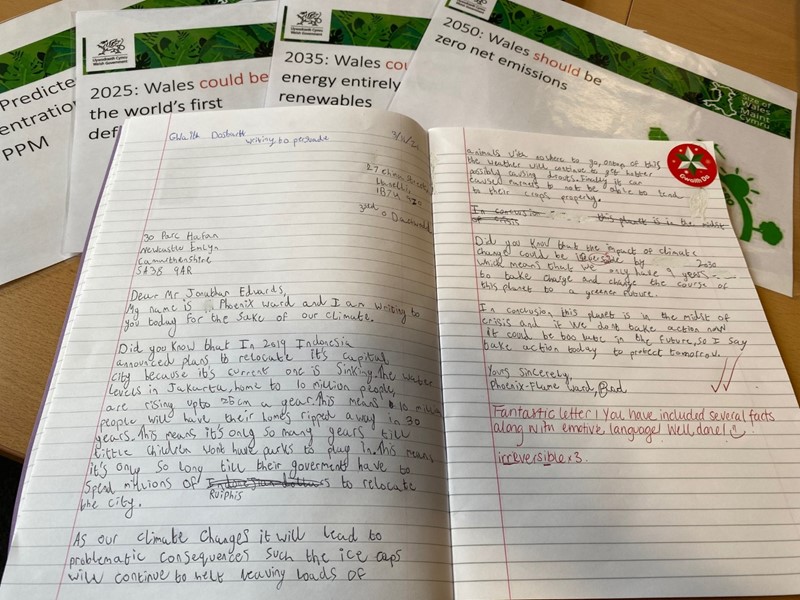 Predicte
entration
PPM
Llywodraeth Cymru
Welsh Government
2025: Wales could be
the world's first
def
Llywodraeth Cymru
Welsh Government
2035: Wales cou
energy entirely
renewables
2050: Wales should be
zero net emissions
Size of
Wales
Maint
Cymru
Gwaith Dosbarth
writing to persuade
Llanelli
30 Parc Hafan
Newcastle Emlyn
Camarthenshire
SA38 9AR
Dear Mr Jonathan Edwards,
My name is Phoenix Ward and I am writing to
you today for the sake of our climate.
Did you know that In 2019 Indonesia
announced plans to relocate it's capital
city because it's current one is sinking. The water
levels in Jakarta, home to 10 million people,
are rising upto 25cm a year. This means 10 million
people will have their homes ripped away in 30
years. This means it's only so many years till
little children wont have parks to play in. This means
it's only so long till their goverment have to
spend millions of to relocate
Ruiphis
the city.
As our climate changes it will lead to
problematic consequences such the ice caps
will continue to melt leaving loads of
animals with nowhere to go, ontop of this
the weather will continue to get hotter
possibly causing drouts. Finally it can
caused farmers to not be able to tend
to their crops property.
In conclusion this planet is in the midst
of crisis
Did you know that the impact of climate
change could be by 2030
which means that we only have 9 years
to take charge and change the course of
this planet to a greener future.
In conclusion this planet is in the midst of
crisis and if we dont take action now
it could be too late in the future, so I say
take action today to protect tomorrow.
Yours sincerely,
Phoenix-Flame Ward,
Gwaith Da
Fantastic letter! You have included several facts
along with emotive language! Well done!
irreversible x3